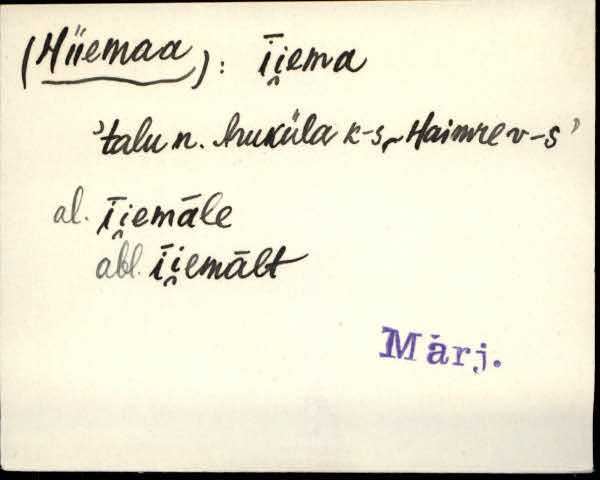 (Hiiemaa): īi̯ema
'talu n. Aruküla k-s, Haimre v-s'
al. īi̯emāle
abl. īi̯emālt
Märj.